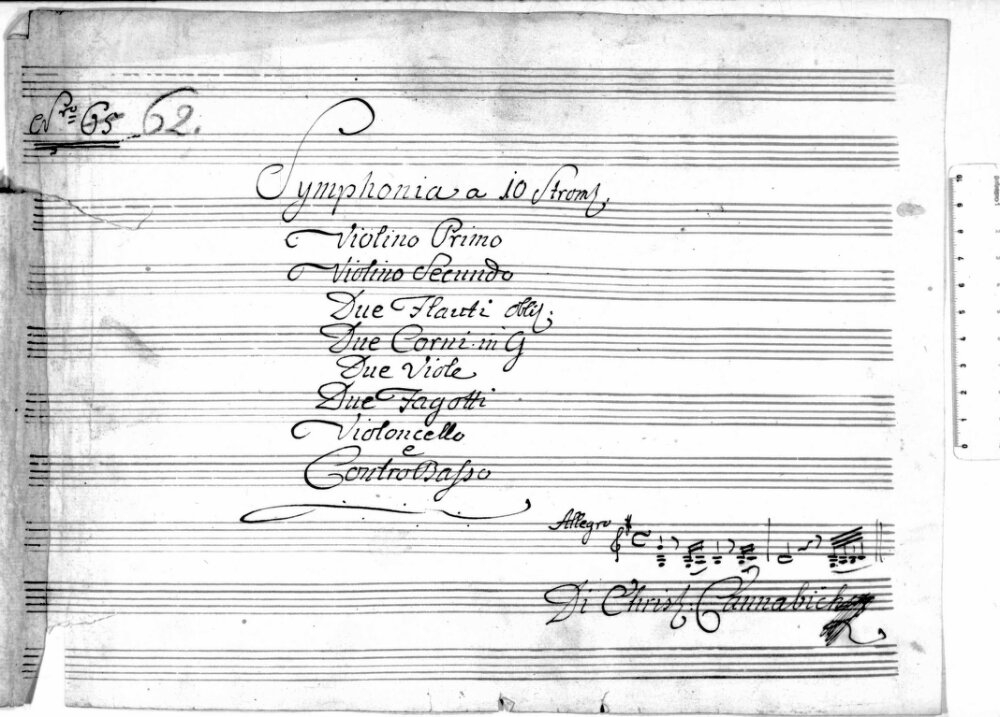 Nro 65 62.
Symphonia a 10 Strom.
Violino Primo
Violino Secundo
Due Flauti obl.
Due Corni in G
Due Viole
Due Fagotti
Violoncello
e
ContraBasso
Allegro
Di Christ. Cannabich